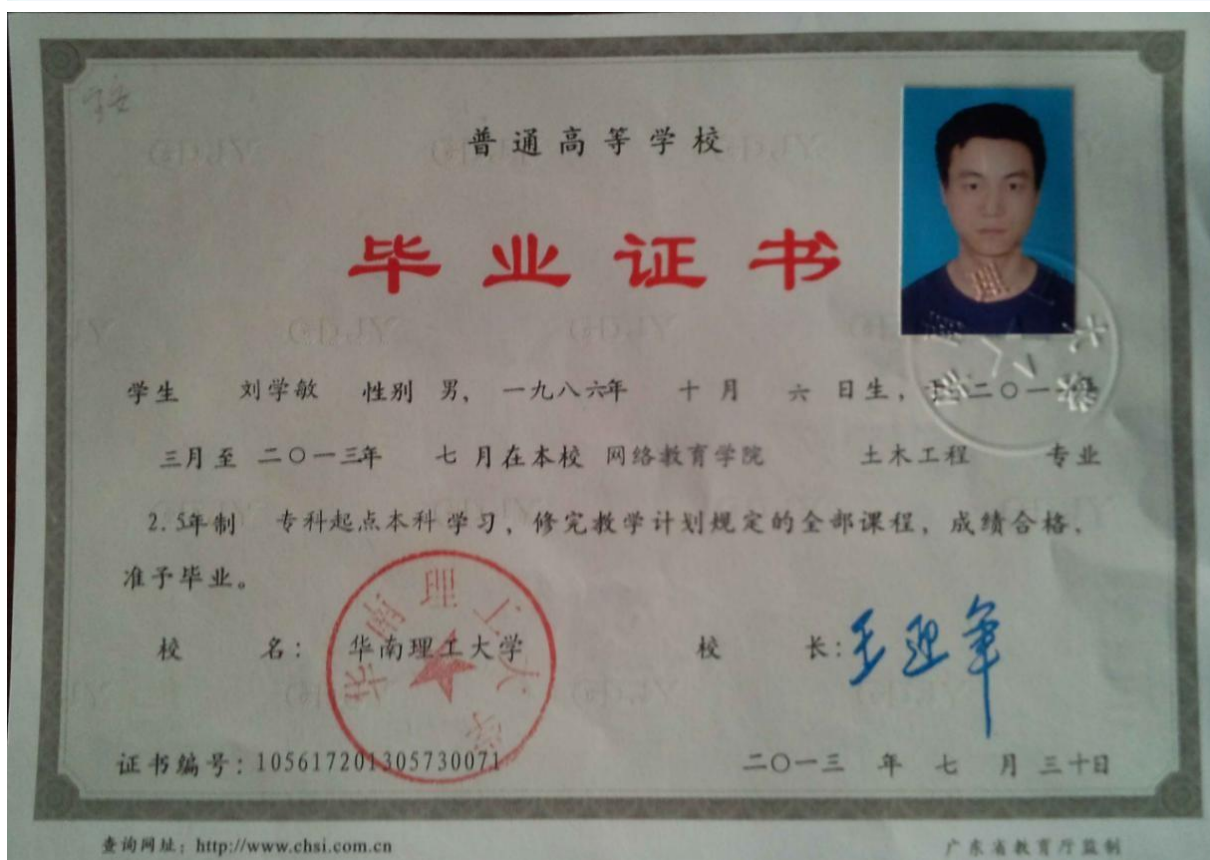 普通高等学校
毕业证书
学生 刘学敏 性别 男，一九八六年 十月 六 日生，二〇一
三月至 二〇一三年 七月在本校 网络教育学院 土木工程 专业
2.5年制 专科起点本科 学习，修完教学计划规定的全部课程，成绩合格，
准予毕业。
校 名： 华南理工大学 校 长：
华南理工大学
证书编号：105617201305730071 二〇一三 年 七 月 三十日
查询网址：http://www.chsi.com.cn 广东省教育厅监制